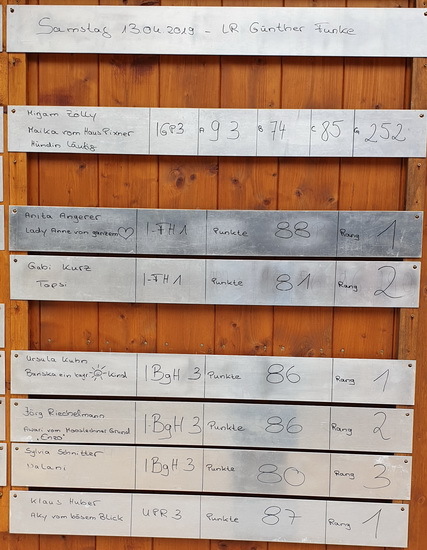 Samstag 13.04.2019 - LR Günther Funke
Mirjam Zolly
Maika vom Haus Pixner
Hündin Läufig
IGP3 A 93 B 74 C 85 G 252
Anita Angerer
Lady Anne vom ganzem ♡
I-FH1 Punkte 88 Rang 1
Gabi Kurz
Topsi
I-FH1 Punkte 81 Rang 2
Ursula Kuhn
Banska ein bayr. ☀ Kind
IBgH 3 Punkte 86 Rang 1
Jörg Riechelmann
Awari vom Moosleichner Grund
"Enzo"
I-BgH 3 Punkte 86 Rang 2
Sylvia Schnitter
Nalani
IBgH 3 Punkte 80 Rang 3
Klaus Huber
Aky vom bösem Blick
UPR 3 Punkte 87 Rang 1